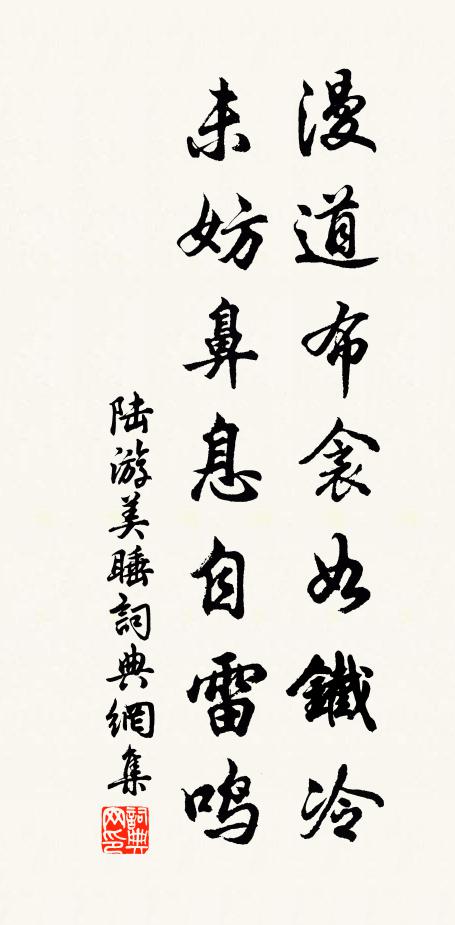 漫道布衾如鐵冷
未妨鼻息自雷鳴
陆游美睡詞典網集
詞典网印